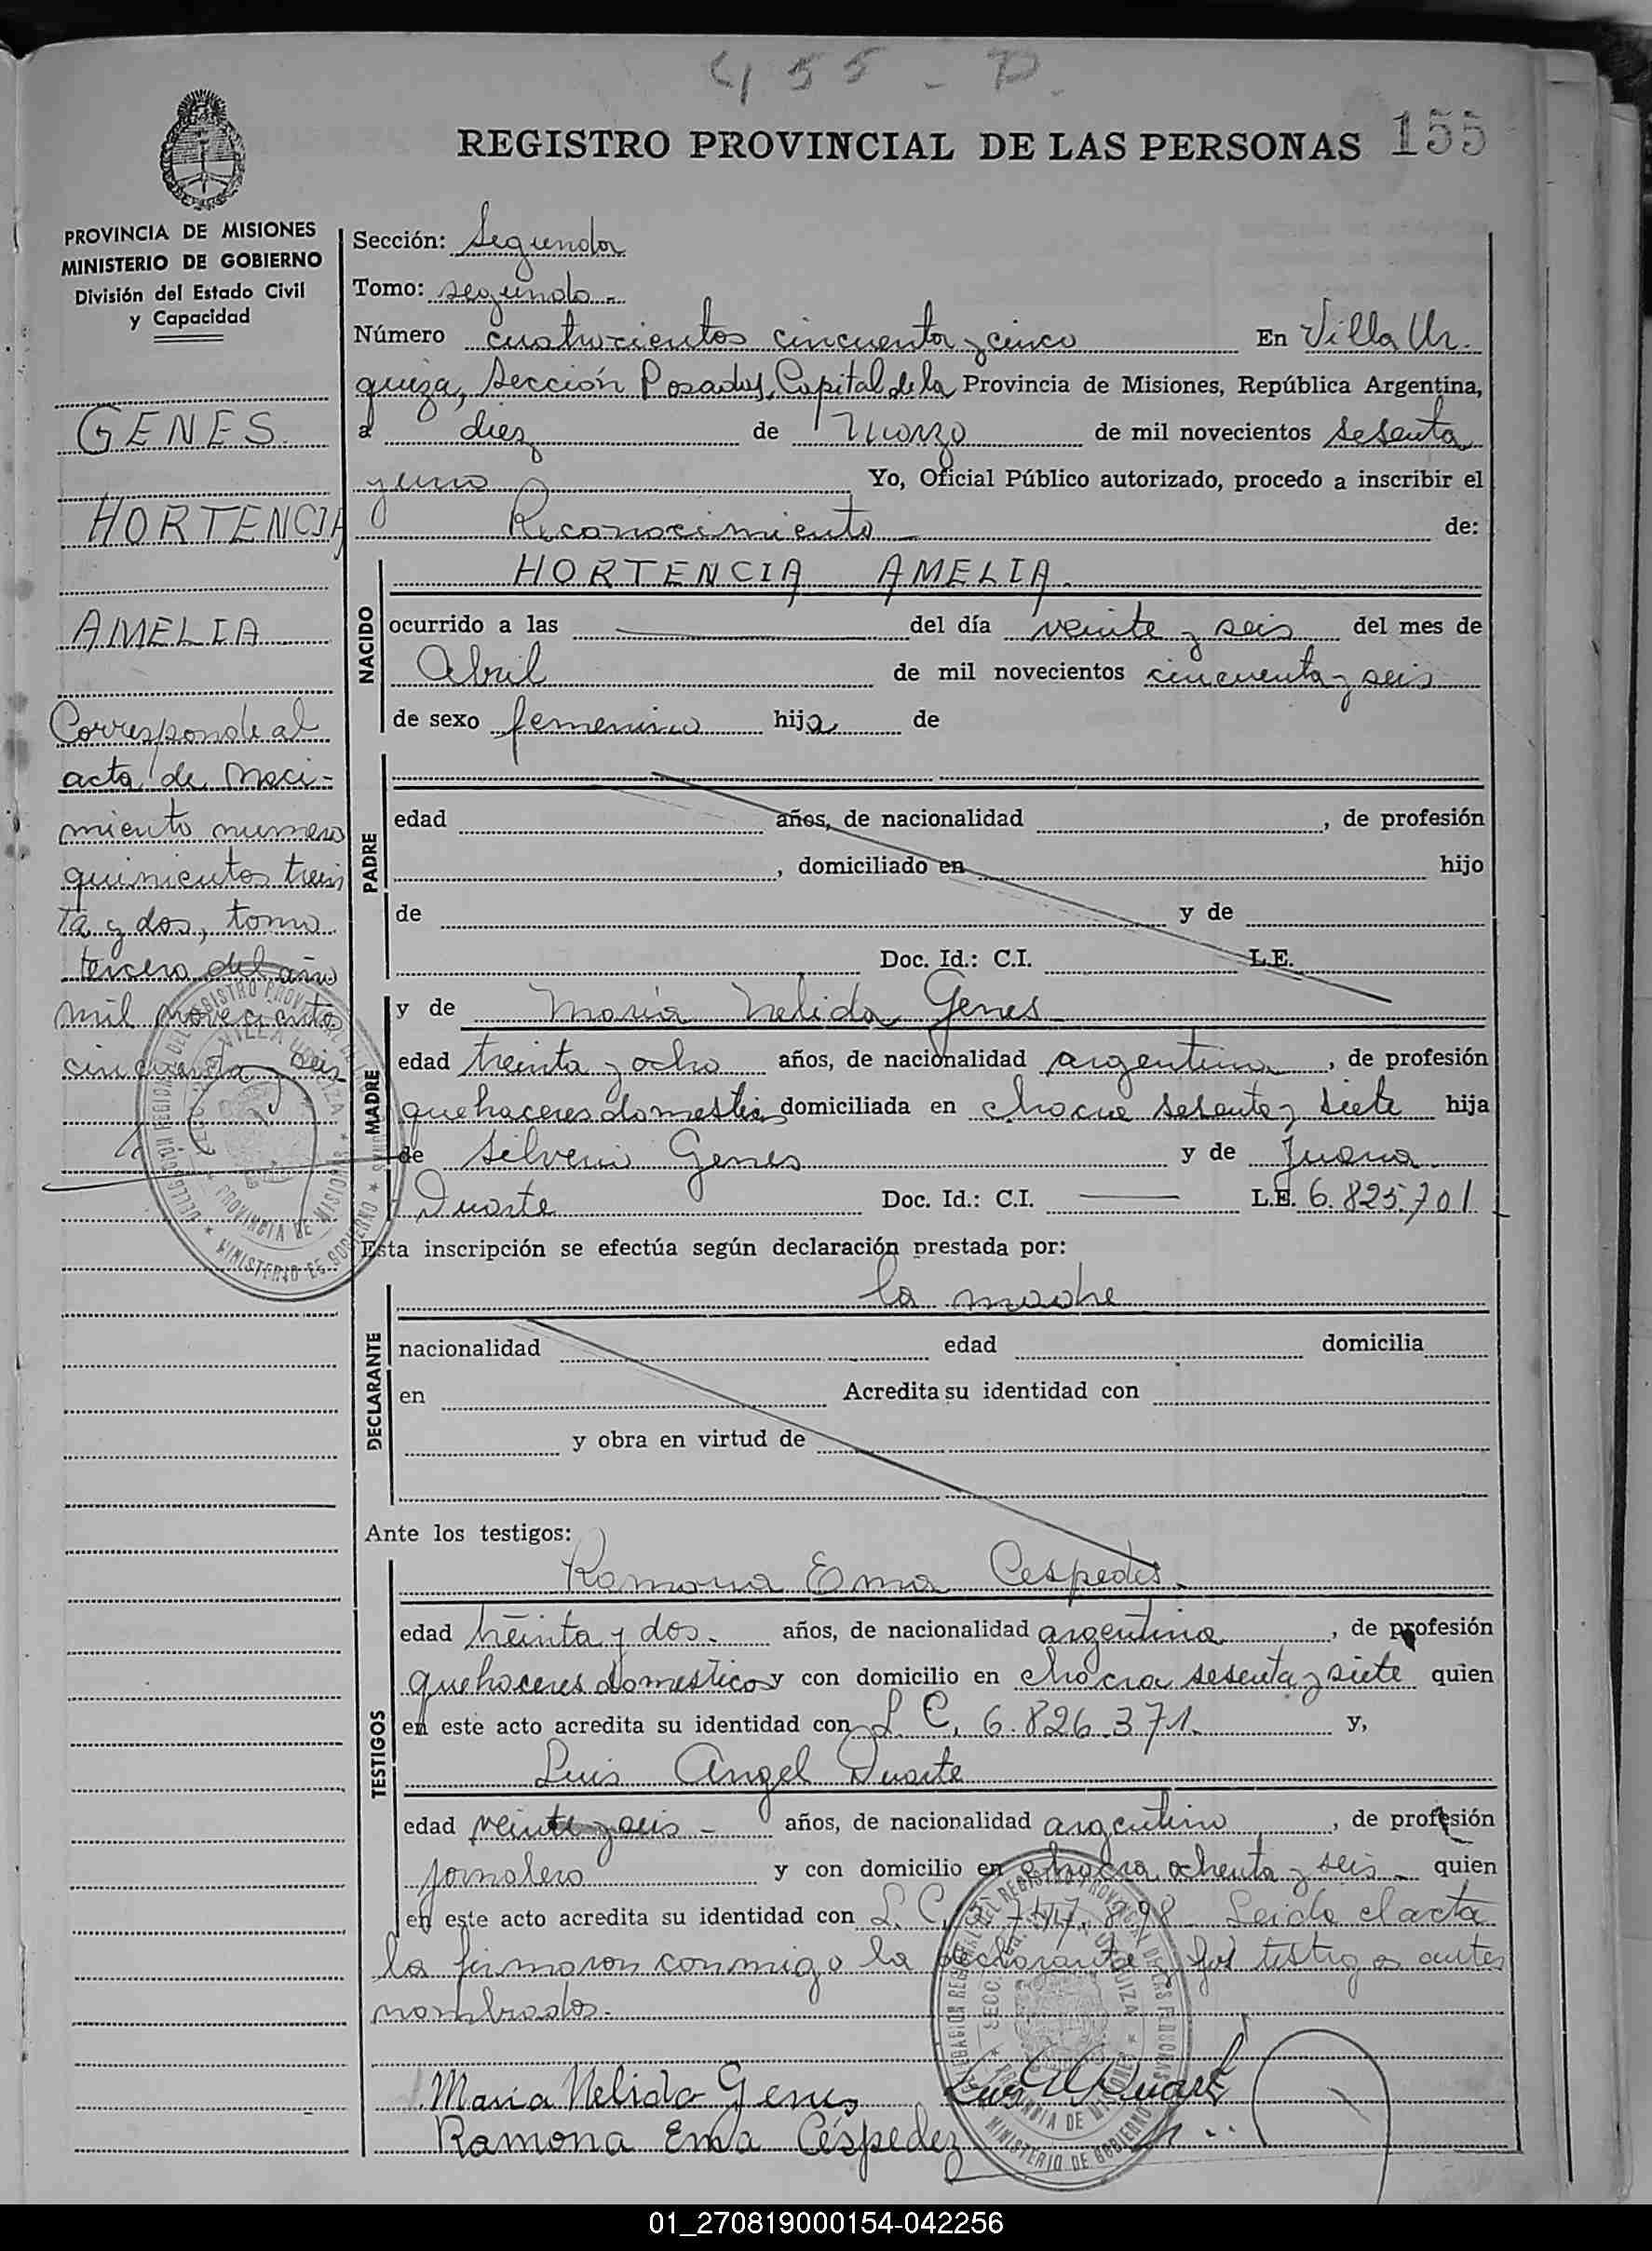 455 - D.
REGISTRO PROVINCIAL DE LAS PERSONAS 155
PROVINCIA DE MISIONES
MINISTERIO DE GOBIERNO
División del Estado Civil
y Capacidad
GENES
HORTENCIA
AMELIA
Corresponde al
acta de Naci-
miento numero
quinientos trein
ta y dos, tomo
tercero del año
mil novecientos
cincuenta y seis
Sección: Segunda
Tomo: segundo.-
Número cuatrocientos cincuenta y cinco En Villa Ur.
quiza, Sección Posadas, Capital de la Provincia de Misiones, República Argentina,
a diez de Marzo de mil novecientos sesenta
y uno Yo, Oficial Público autorizado, procedo a inscribir el
Reconocimiento de:
NACIDO
HORTENCIA AMELIA.
ocurrido a las del día veinte y seis del mes de
Abril de mil novecientos cincuenta y seis
de sexo femenino hija de
PADRE
edad años, de nacionalidad , de profesión
, domiciliado en hijo
de y de
Doc. Id.: C.I. L.E.
MADRE
y de María Nelida Genes
edad treinta y ocho años, de nacionalidad argentina , de profesión
quehaceres domestico domiciliada en chacra sesenta y siete hija
de Silverio Genes y de Juana
Duarte Doc. Id.: C.I. L.E. 6.825.701
Esta inscripción se efectúa según declaración prestada por:
DECLARANTE
la madre
nacionalidad edad domicilia
en Acredita su identidad con
y obra en virtud de
Ante los testigos:
TESTIGOS
Ramona Ema Cespedes.
edad treinta y dos. años, de nacionalidad argentina , de profesión
quehaceres domestico y con domicilio en chacra sesenta y siete quien
en este acto acredita su identidad con L C. 6.826.371. y,
Luis Angel Duarte
edad veinte y seis - años, de nacionalidad argentino , de profesión
jornalero y con domicilio en chacra ochenta y seis quien
en este acto acredita su identidad con L. C. 898 Leida el acta
la firmaron conmigo la declarante y los testigos antes
nombrados.
Maria Nelida Genes Luis A Duarte
Ramona Ema Céspedez
01_270819000154-042256